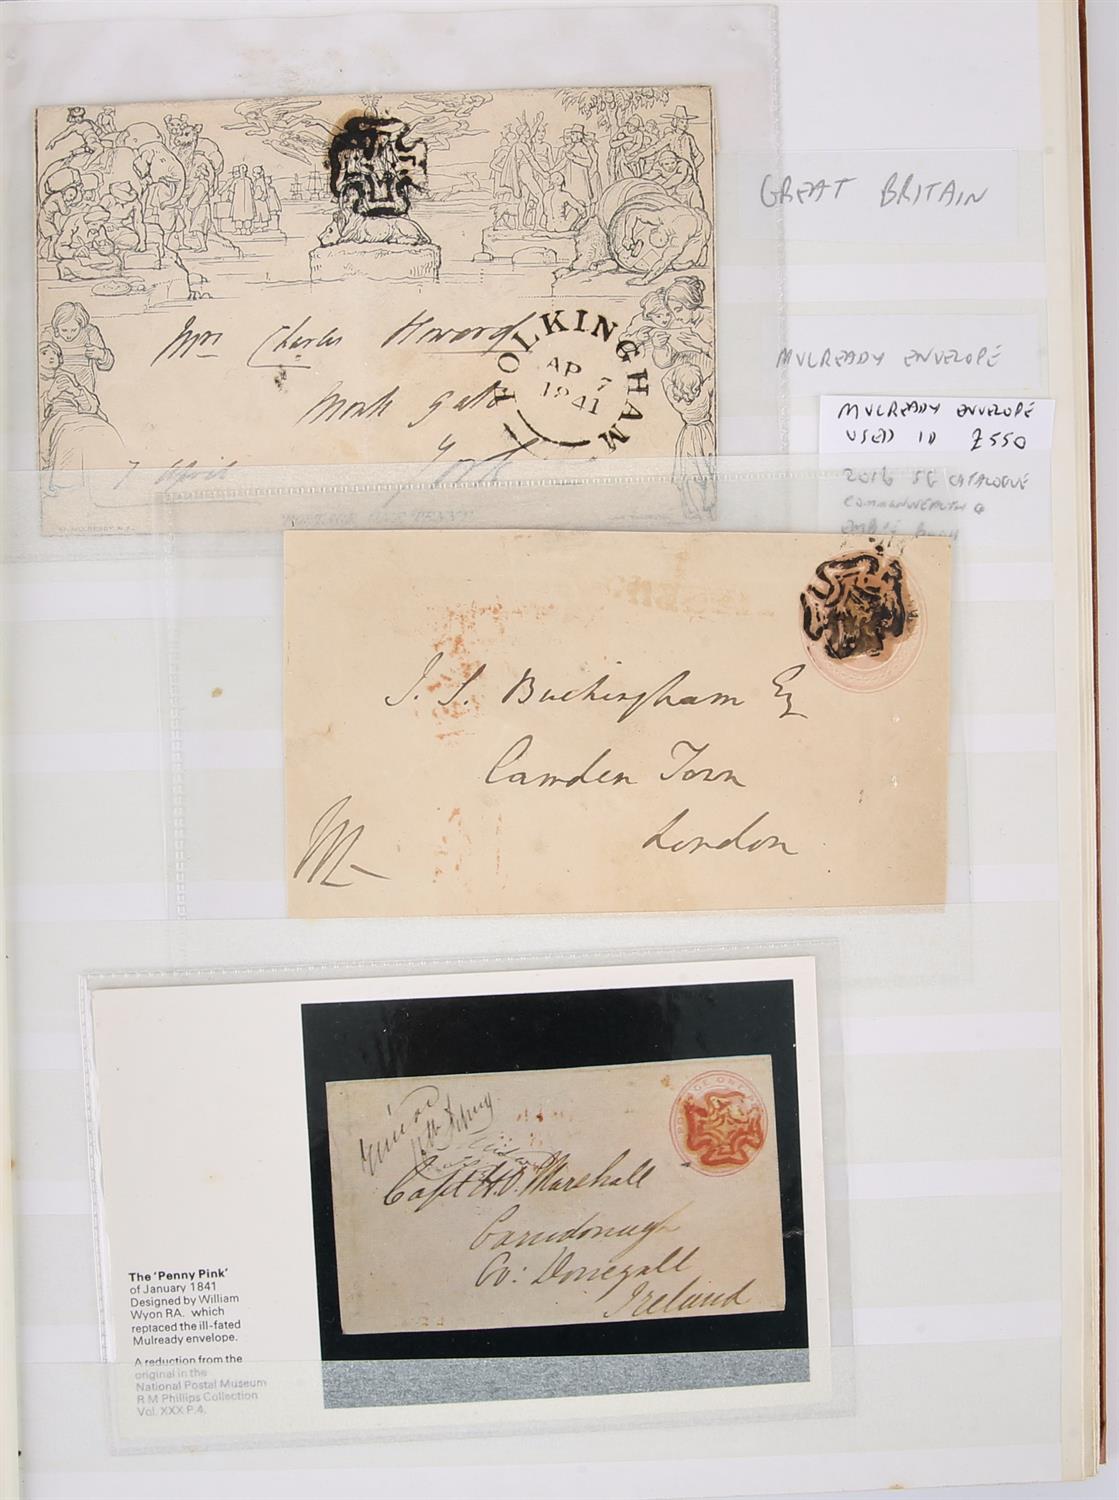 GREAT BRITAIN
MULREADY ENVELOPE
MULREADY ENVELOPE
USED 1D £550
2016 SG CATALOGUE
COMMONWEALTH &
FOLKINGHAM
AP 7
1841
Mrs Charles Howard
Monk Gate
York
7 April
POSTAGE ONE PENNY
J. S. Buckingham Esq
Camden Town
London
M
POSTAGE ONE
Capt H. O. Marshall
Carndonagh
Co: Donegall
Ireland
The 'Penny Pink'
of January 1841
Designed by William
Wyon RA. which
replaced the ill-fated
Mulready envelope.
A reduction from the
original in the
National Postal Museum
R M Phillips Collection
Vol. XXX P.4.